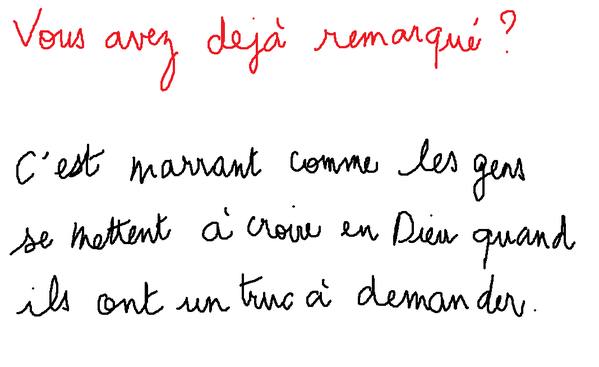 Vous avez dejà remarqué ?
C'est marrant comme les gens
se mettent à croire en Dieu quand
ils ont un truc à demander.